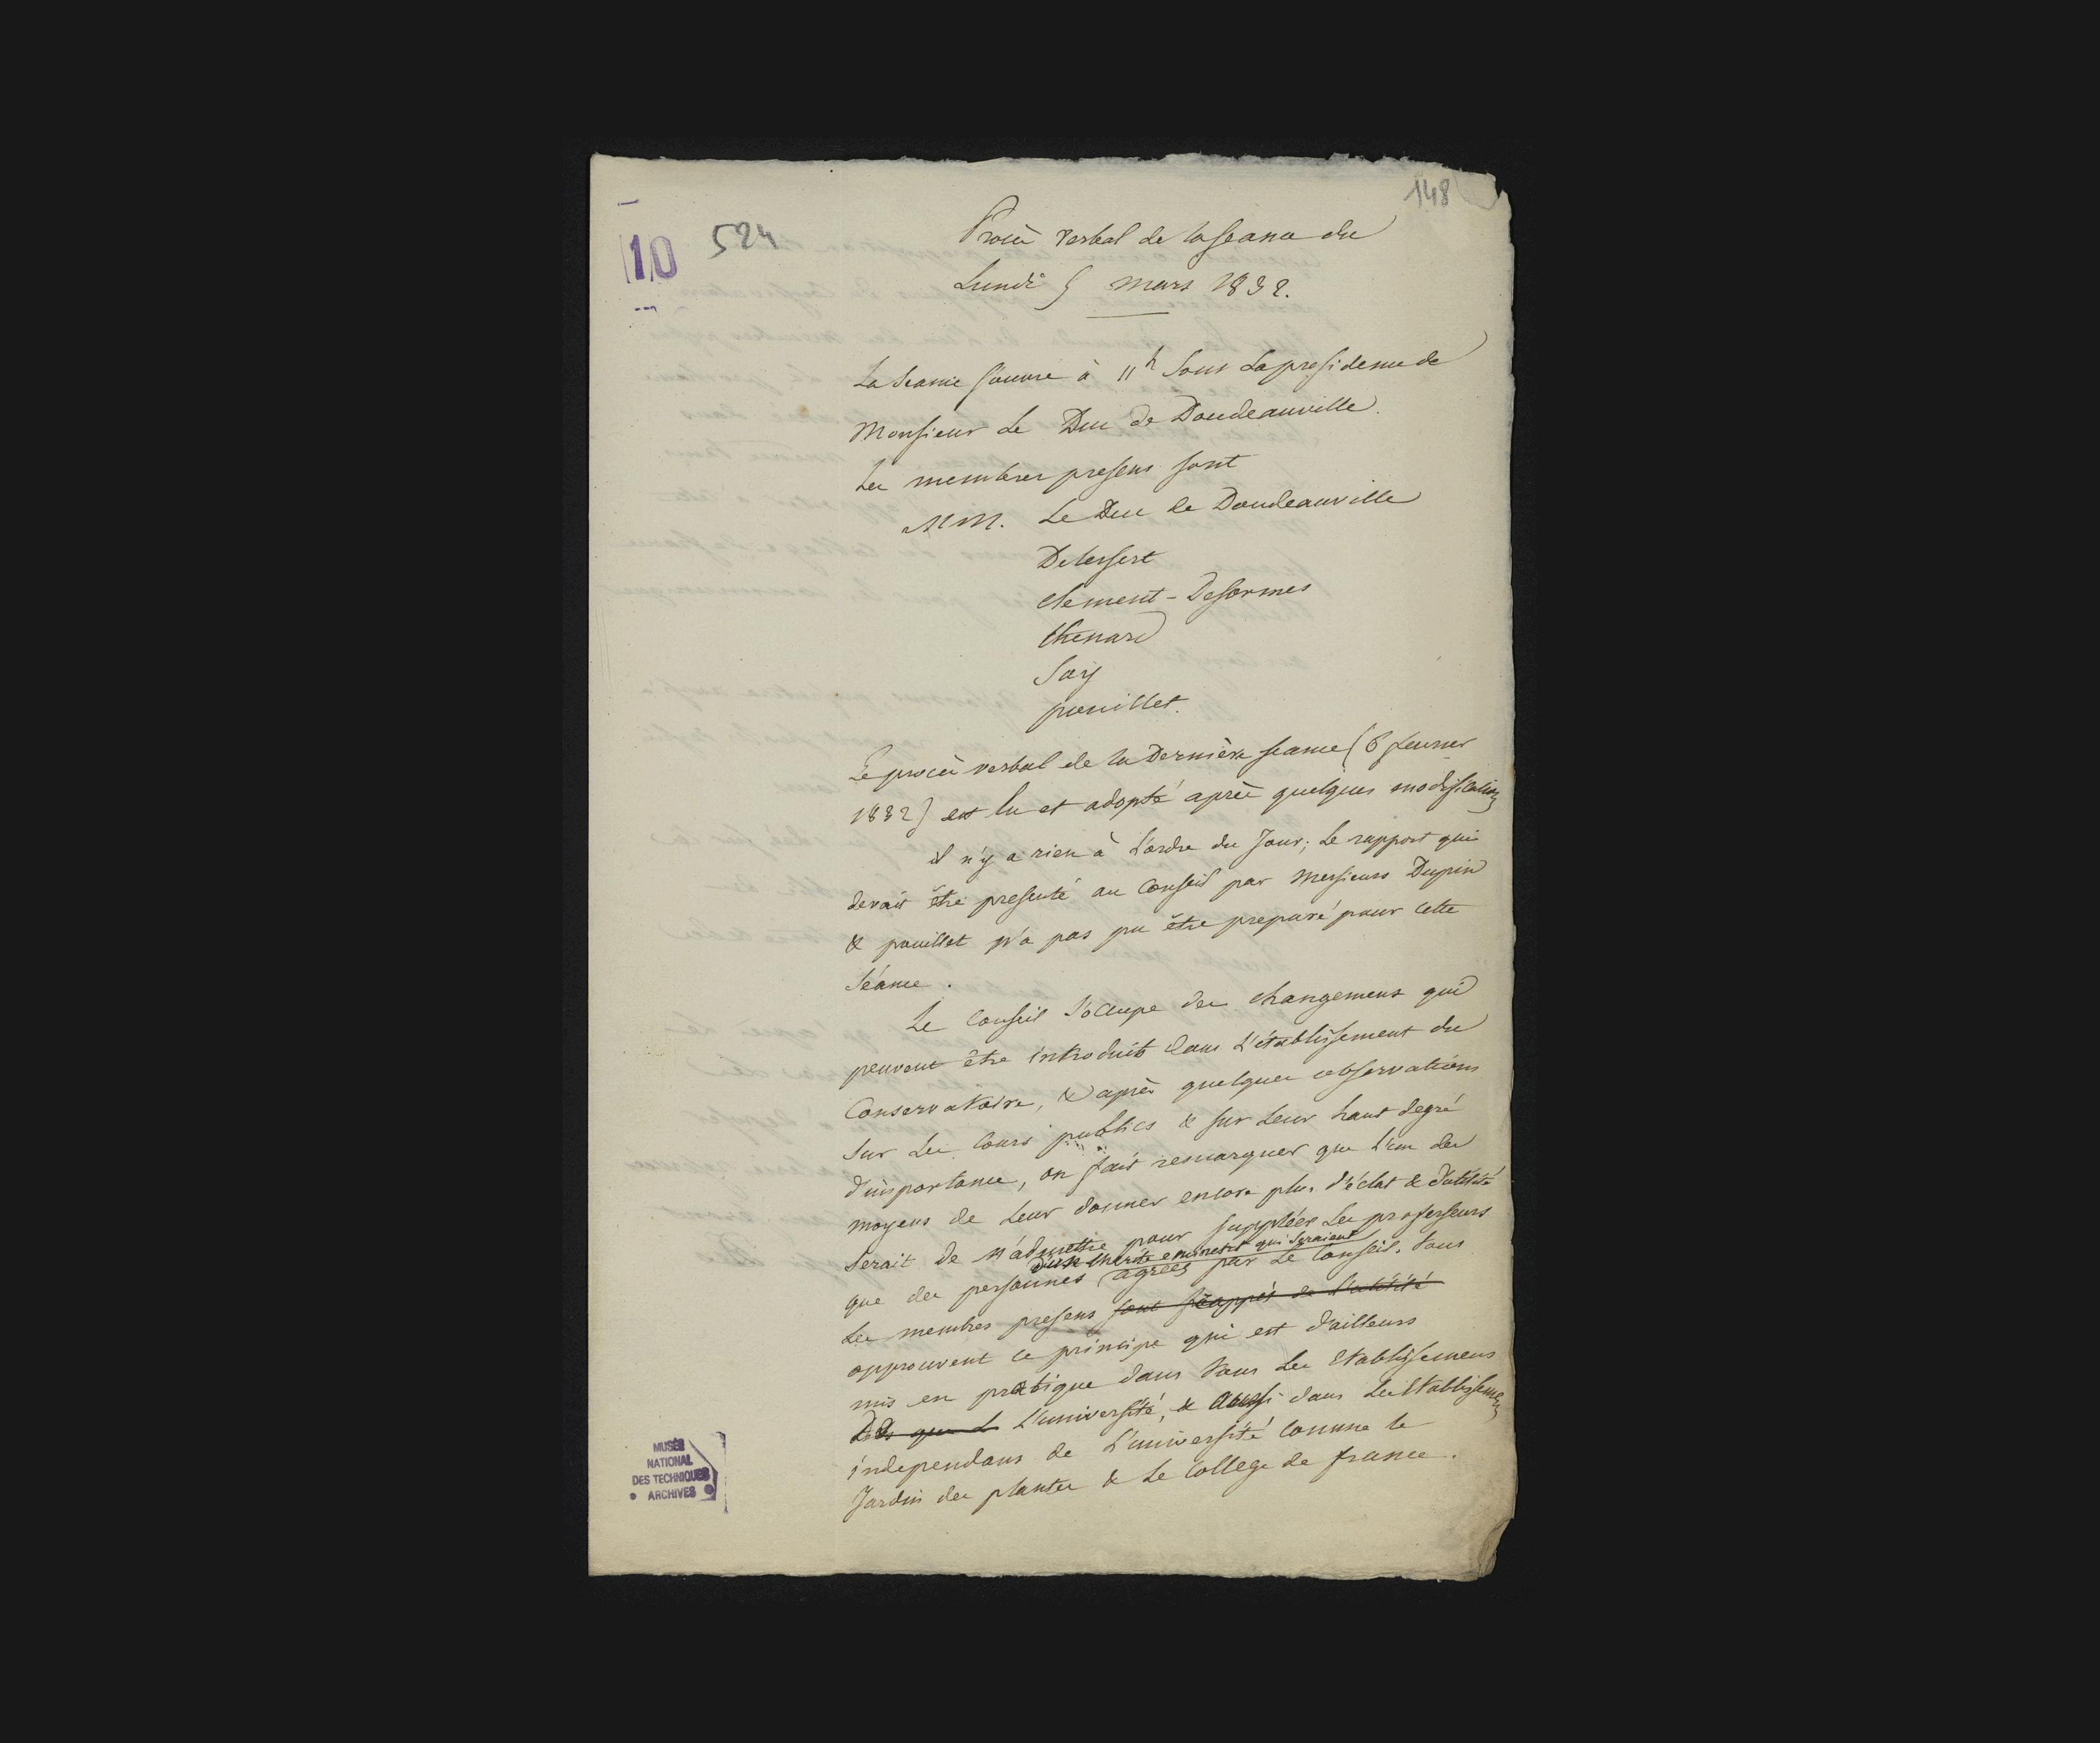 148
10
524
Procès verbal de la séance du
Lundi 5 mars 1832.
La séance s'ouvre à 11h sous la presidence de
Monsieur Le Duc de Doudeauville.
Les membres presens sont
MM. Le Duc de Doudeauville
Delessert
Clement-Desormes
thenard
Say
pouillet.
Le procès verbal de la Dernière seance (6 fevrier
1832) est lu et adopté après quelques modifications
il n'y a rien à l'ordre du Jour; Le rapport qui
devait être presenté au Conseil par Messieurs Dupin
& pouillet n'a pas pu être preparé pour cette
séance.
Le Conseil s'occupe des changemens qui
peuvent être introduits dans l'établissement du
Conservatoire, & après quelques observations
sur les Cours publics & sur leur haut degré
d'importance, on fait remarquer que l'un des
moyens de leur donner encore plus d'éclat & d'utilité
serait de n'admettre pour suppléer les professeurs
d'un merite eminent qui seraient
que des personnes agrees par Le Conseil. tous
les membres presens sont frappés de l'utilité
approuvent ce principe qui est d'ailleurs
mis en pratique dans tous les etablissemens
de l'université, & aussi dans les etablissemens
independans de l'université comme le
Jardin des plantes & le College de france.
MUSÉE
NATIONAL
DES TECHNIQUES
• ARCHIVES •